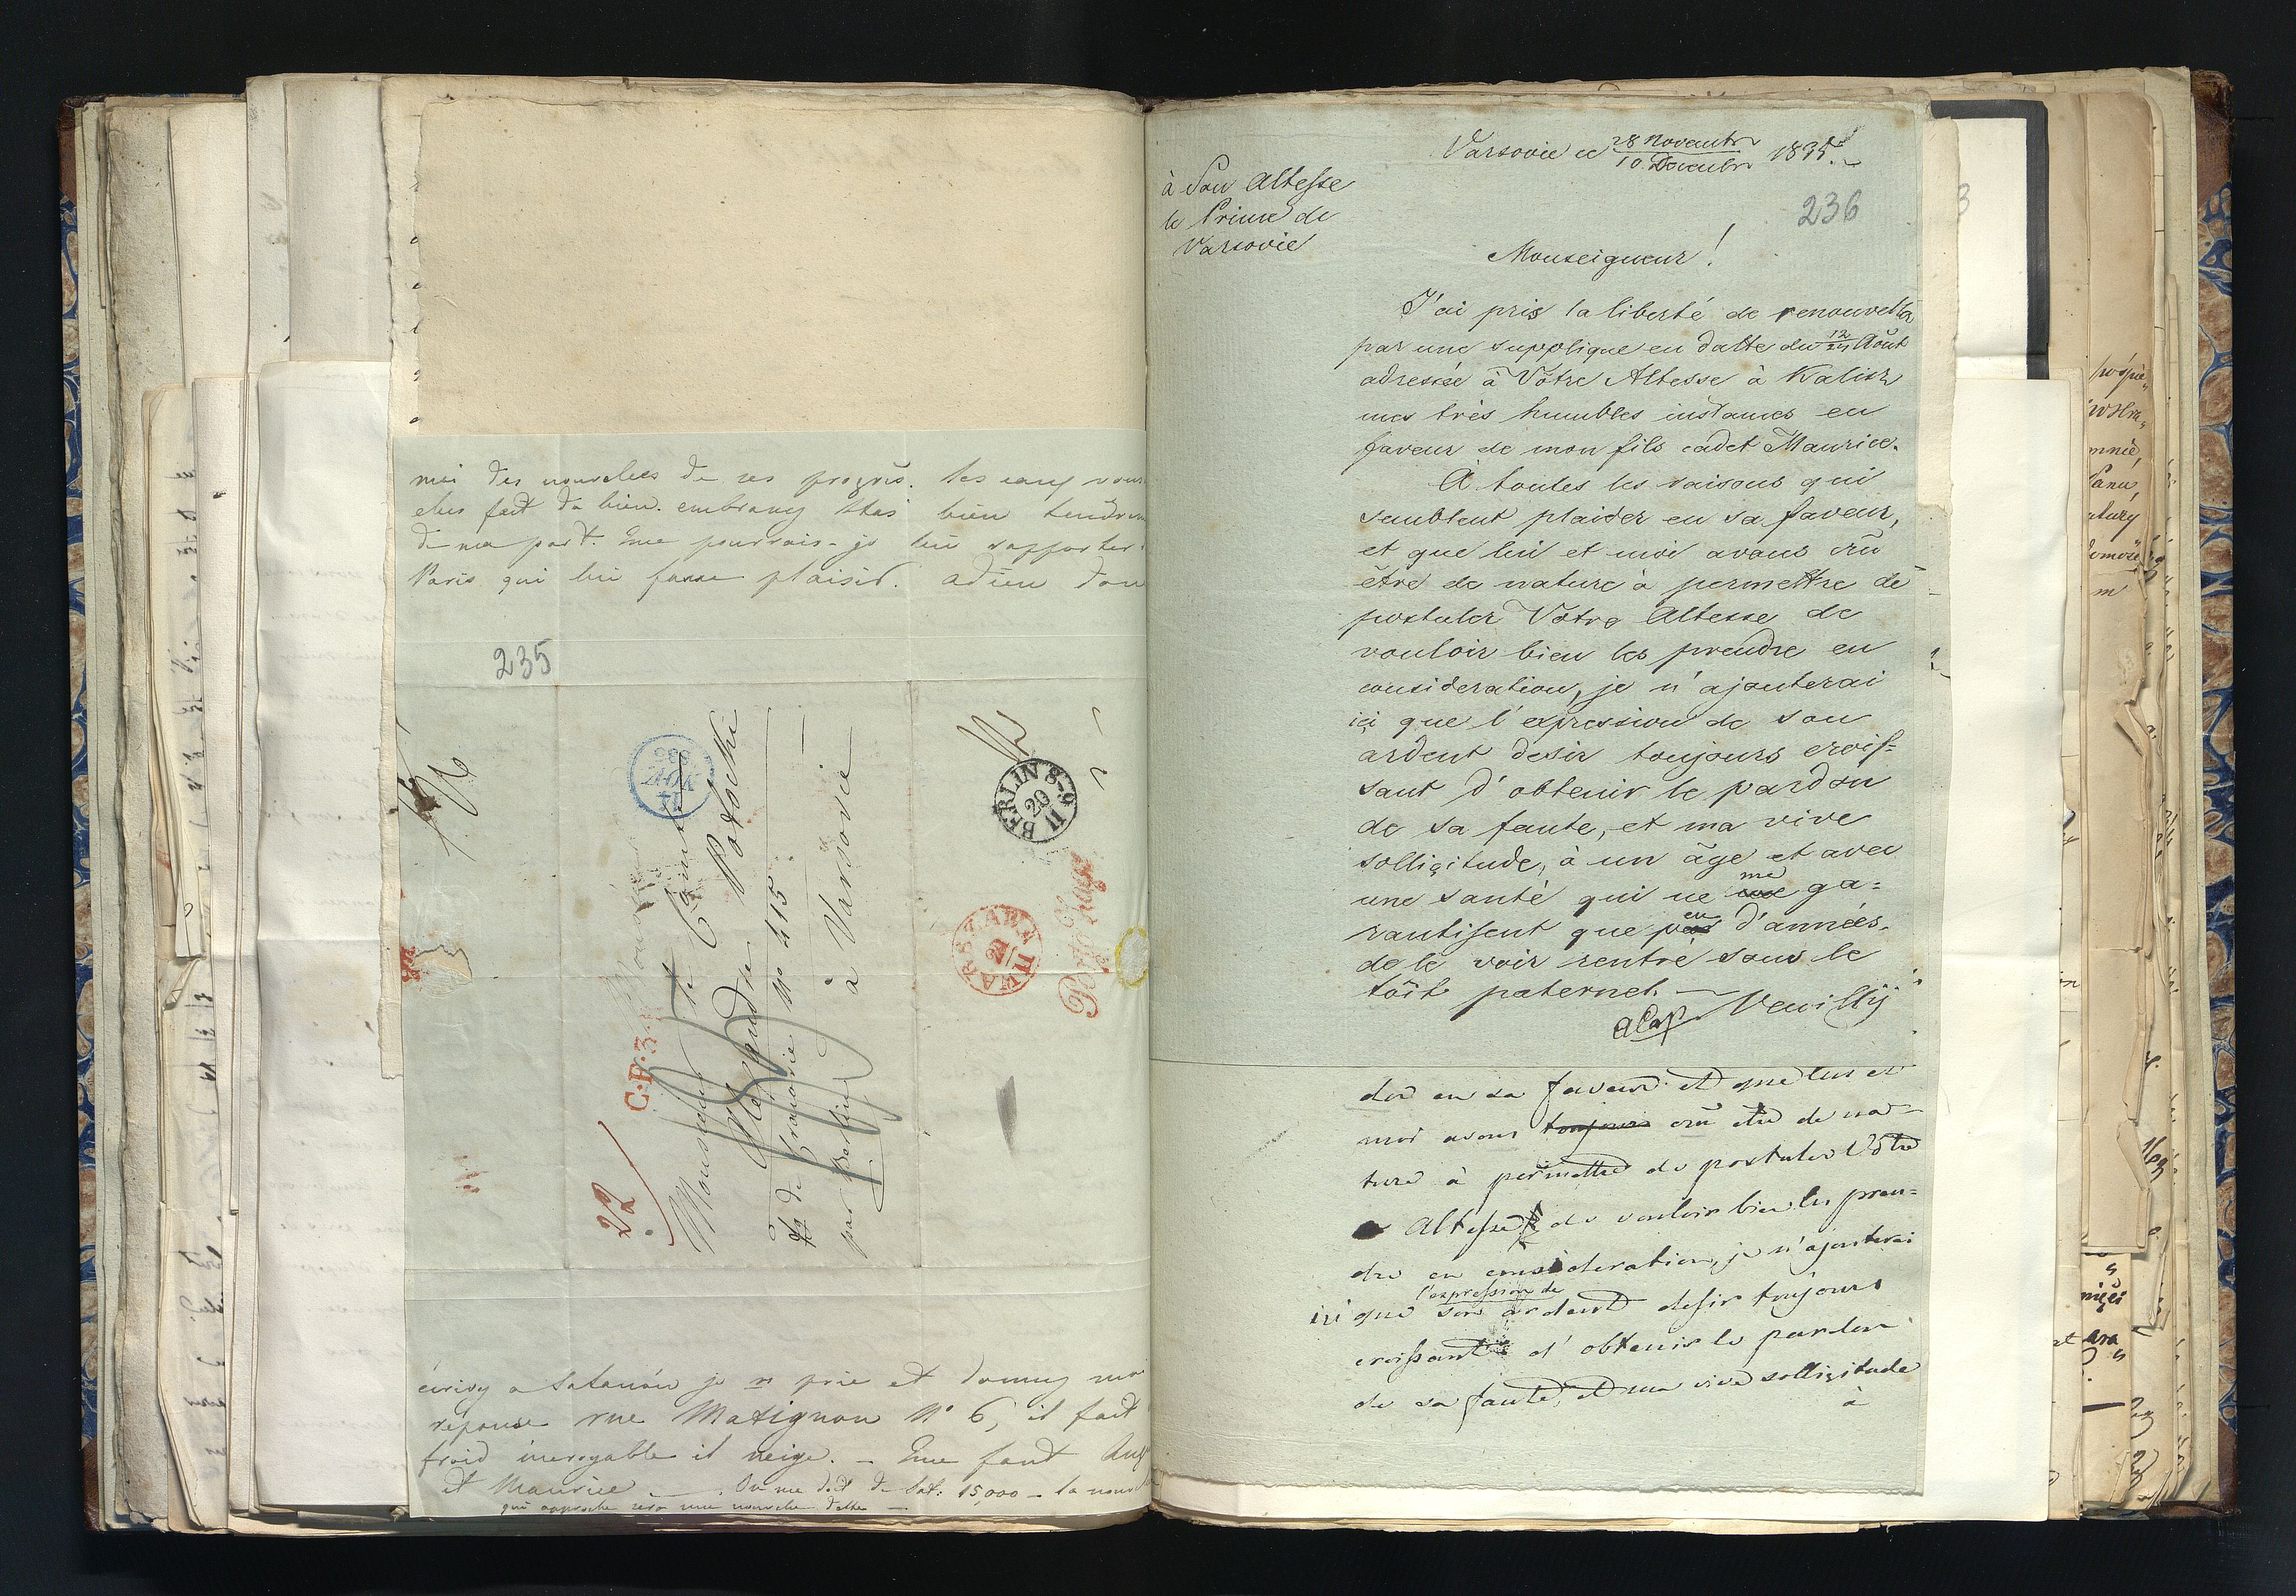 moi des nouvelles de ses progrès. les eaux vous
elles fait du bien. embrassez Stas bien tendrem
de ma part. Que pourrais-je lui rapporter
Paris qui lui fasse plaisir. adieu don
235
NOV
BERLIN 8-9
20
11
WARSZAWA
22
11
C.F.3.
22
Monsieur le Comte
Alexandre Potocki
fg de Cracovie No 415
par Berlin à Varsovie
écrivez a Satanów je v prie et donnez moi
réponse rue Matignon N° 6, il fait
froid incroyable il neige. — Que font Aug
et Maurice —. On me doit de Sat. 15,000 — la nouvel
qui approche sera une nouvelle dette —.
Varsovie ce 28 Novembre / 10 Decembre 1835.
à Son Altesse
le Prince de
Varsovie
236
Monseigneur!
J'ai pris la liberté de renouveller
par une supplique en datte du 12/24 Août
adressée à Vôtre Altesse à Kalisz
mes très humbles instances en
faveur de mon fils cadet Maurice.
A toutes les raisons qui
semblent plaider en sa faveur,
et que lui et moi avons crû
être de nature à permettre de
postuler Votre Altesse de
vouloir bien les prendre en
consideration, je n'ajouterai
içi que l'expression de son
ardent desir toujours crois=
sant d'obtenir le pardon
de sa faute, et ma vive
solliçitude, à un âge et avec
une santé qui ne me ga=
rantissent que peu d'années,
de le voir rentré sous le
toît paternel. —
Veuillij
der en sa faveur et que lui et
moi avons toujours crû etre de na=
ture à permettre de postuler Vôtre
Altesse de vouloir bien les pren=
dre en consideration, je n'ajouterai
l'expression de
ici que son ardent desir toujours
croissant d'obtenir le pardon
de sa faute, et ma vive solliçitude
à